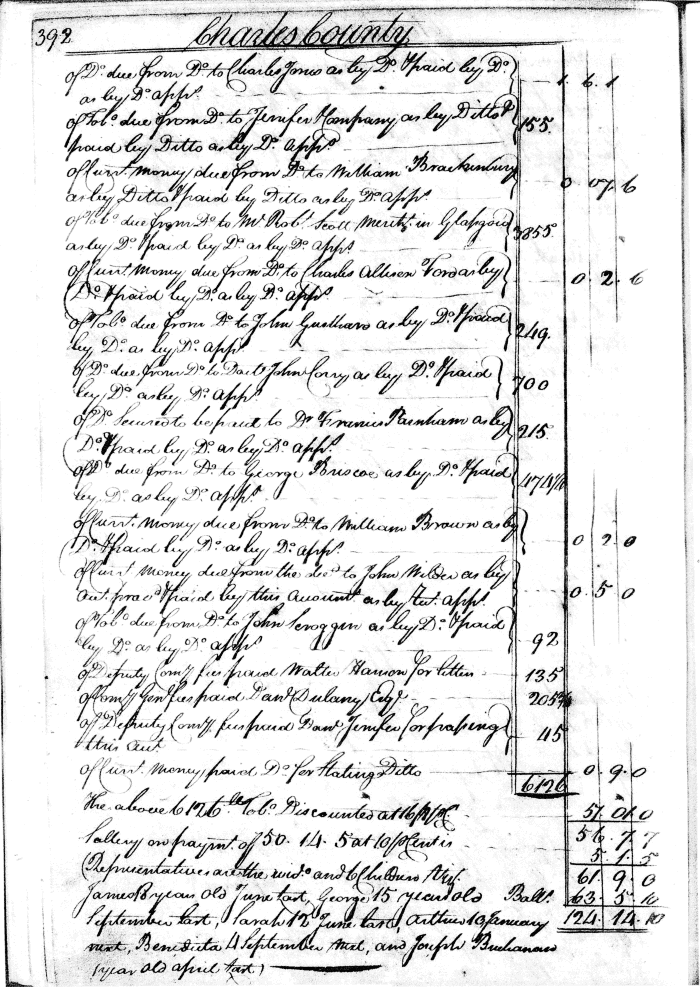 392 Charles County
of Do. due from Do. to Charles Jones as by Do. & paid by Do. 1. 6. 1
as by Do. appr.
of Tobo. due from Do. to Jenifer & Company as by Ditto &
paid by Ditto as by Do. appr. 155.
of Curt. Money due from Do. to William Brackenbury
as by Ditto & paid by Ditto as by Do. appr. 0. 07. 6
of Tobo. due from Do. to Mr. Robt. Scott Mercht. in Glasgow
as by Do. & paid by Do. as by Do. appr. 3855.
of Curt. Money due from Do. to Charles Allison Ford as by
Do. & paid by Do. as by Do. appr. 0. 2. 6
of Tobo. due from Do. to John as by Do. & paid
by Do. as by Do. appr. 249.
of Do. due from Do. to Doctr. John Corry as by Do. & paid
by Do. as by Do. appr. 700
of Do. Secured to be paid to Dr. Francis Parnham as by
Do. & paid by Do. as by Do. appr. 215.
of Do. due from Do. to George Briscoe as by Do. & paid
by Do. as by Do. appr. 474
of Curt. Money due from Do. to William Brown as by
Do. & paid by Do. as by Do. appr. 0. 2. 0
of Curt. Money due from the decd. to John Wilder as by
Act. provd. & paid by this Accountt. as by Do. appr. 0. 5. 0
of Tobo. due from Do. to John Scroggin as by Do. & paid
by Do. as by Do. appr. 92
of Deputy Comy. fees paid Walter Hanson for Letters 135
of Comy. Genl. fees paid Danl. Dulany Esqr. 205
of Deputy Comy. fees paid Danl. Jenifer for passing
this Act. 45
of Curt. Money paid Do. for Stating Ditto 0. 9. 0
6126
The above 6126 lb Tobo. Discounted at 16/8 51. 01. 0
56. 7. 7
Sallery on paymt. of 50. 14. 5 at 10 Cent is 5. 1. 5
Representatives are the wido. and 6 Children Viz. 61. 9. 0
James 18 years old June last, George 15 years old Ball. 63. 5. 10
September last, Sarah 12 June last, Arthur 10 January 124. 14. 10
next, Benedicta 4 September next, and Joseph Buchanan
1 year old april last